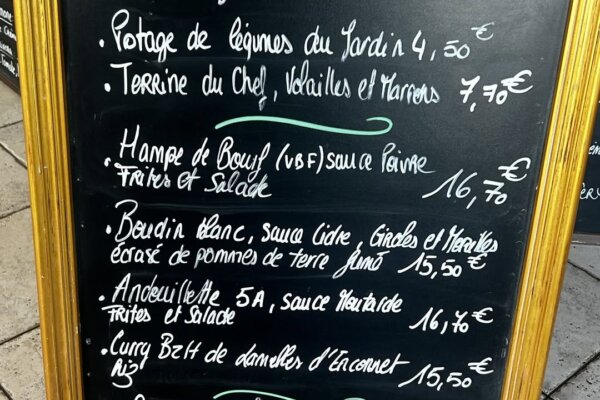 • Potage de légumes du Jardin 4,50€
• Terrine du Chef, Volailles et Marrons 7,70€
• Hampe de Bœuf (VBF) sauce Poivre
Frites et Salade 16,70€
• Boudin blanc, sauce Cidre, Girolles et Morilles
écrasé de pommes de terre fumé 15,50€
• Andouillette 5A, sauce Moutarde
Frites et Salade 16,70€
• Curry BZH de lamelles d'Encornet
Riz 15,50€